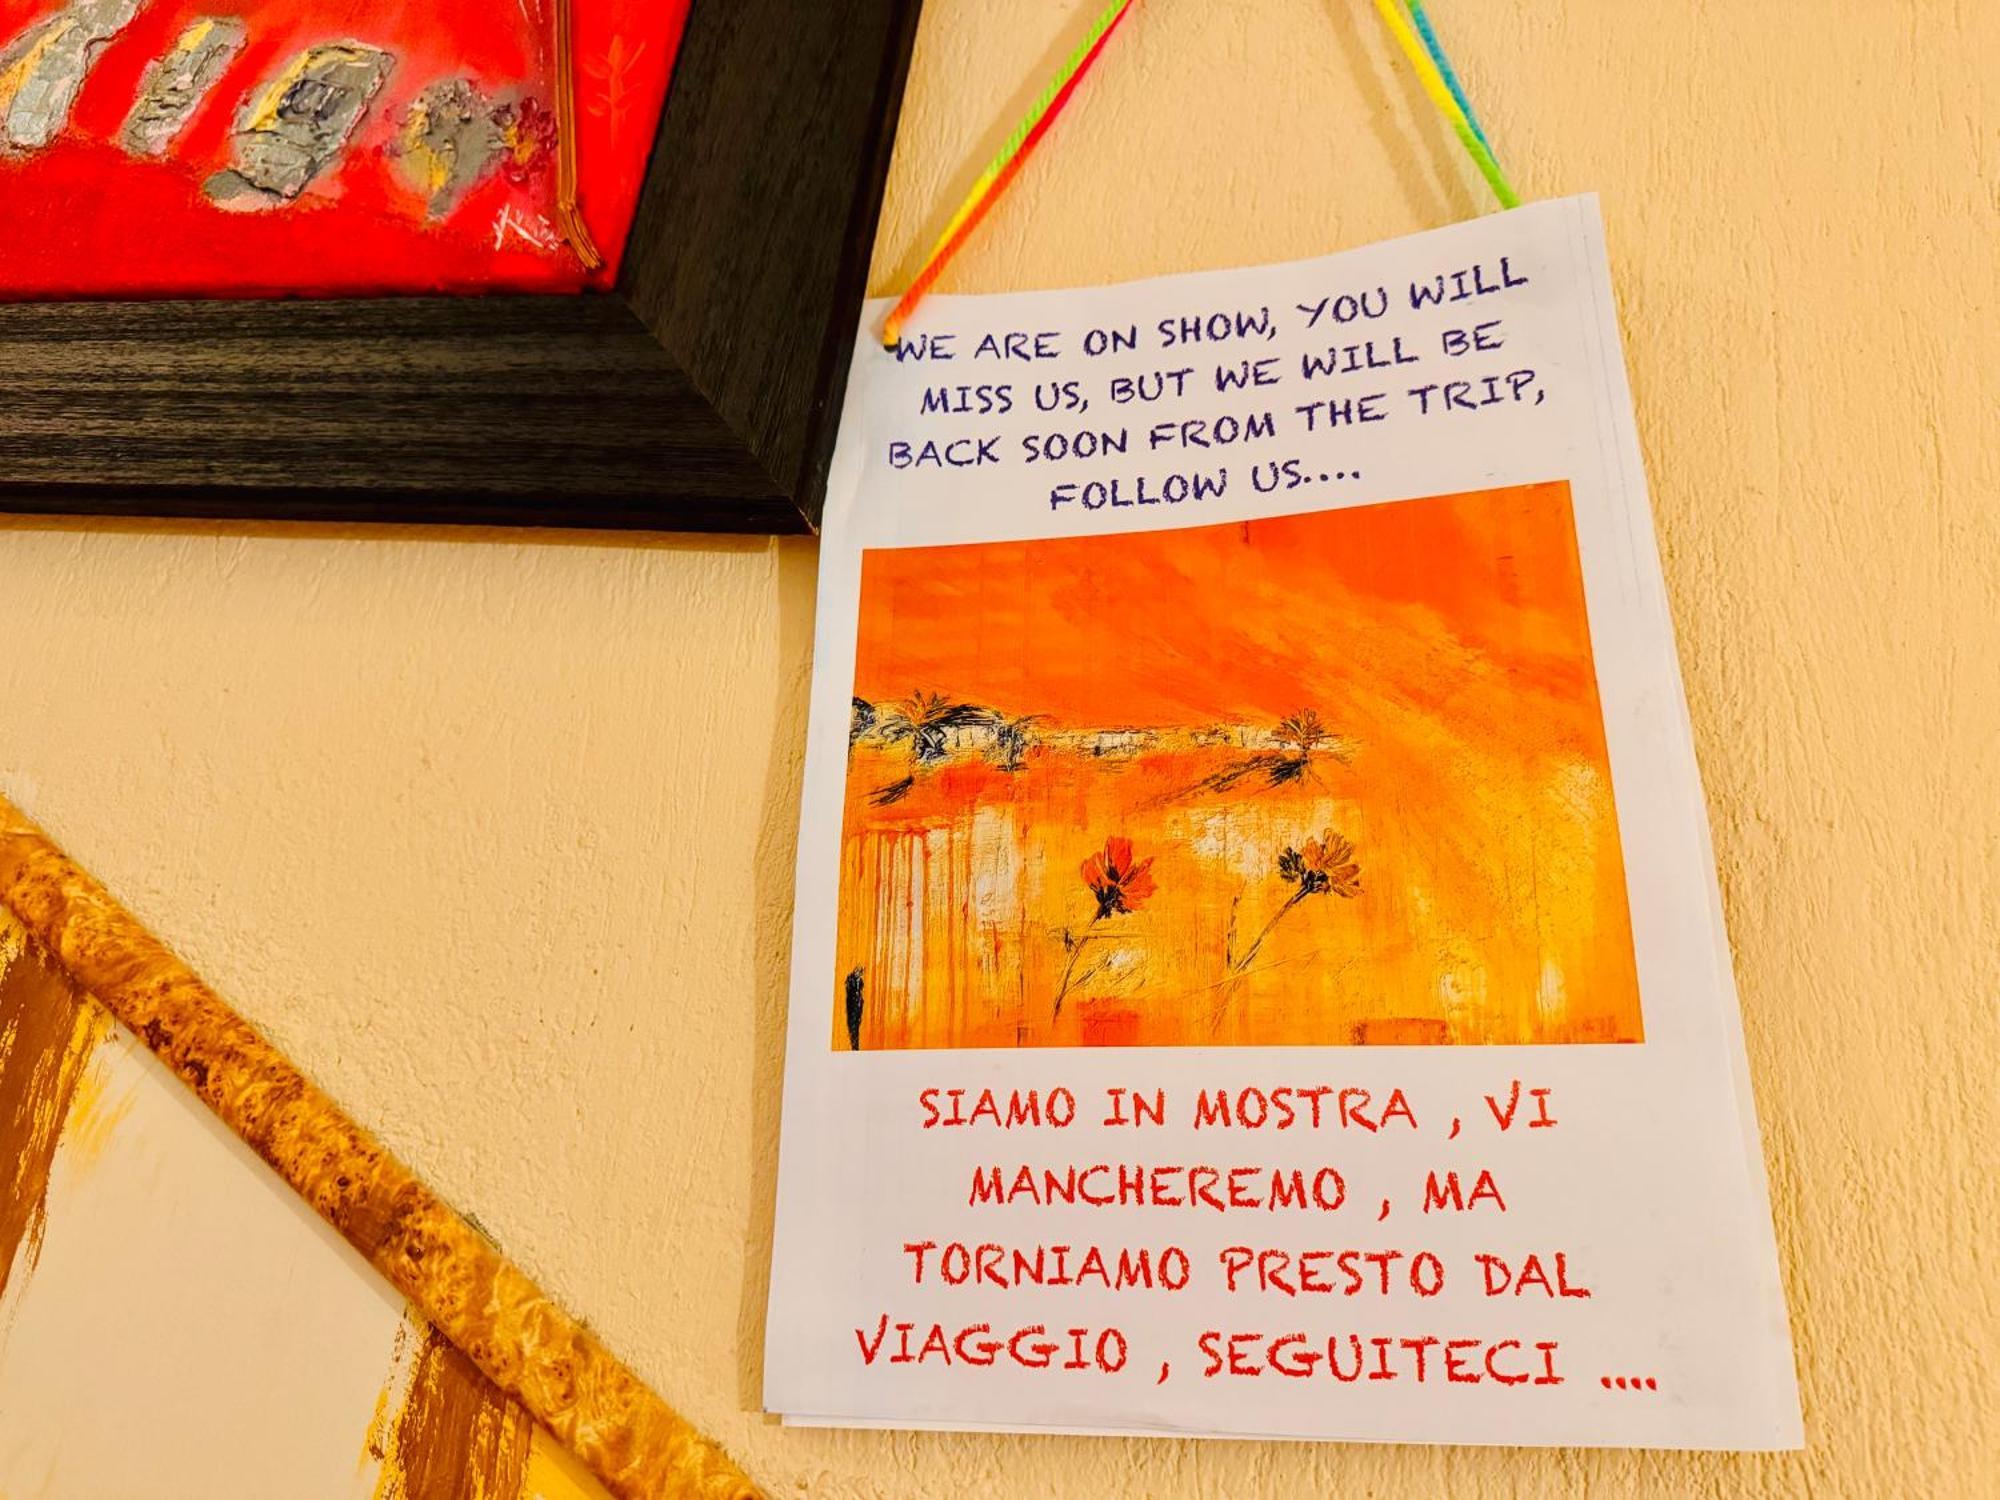 WE ARE ON SHOW, YOU WILL
MISS US, BUT WE WILL BE
BACK SOON FROM THE TRIP,
FOLLOW US....
SIAMO IN MOSTRA , VI
MANCHEREMO , MA
TORNIAMO PRESTO DAL
VIAGGIO , SEGUITECI ....